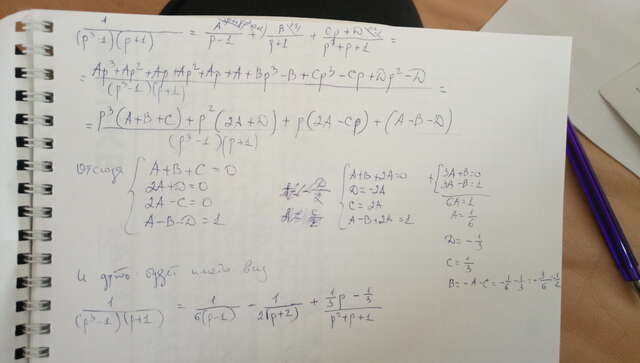 1/((p³-1)(p+1)) = A/(p-1) + B/(p+1) + (Cp+D)/(p²+p+1) =
= (Ap³+Ap²+Ap+Ap²+Ap+A+Bp³-B+Cp³-Cp+Dp²-D)/((p³-1)(p+1)) =
= (p³(A+B+C)+p²(2A+D)+p(2A-Cp)+(A-B-D))/((p³-1)(p+1))
Отсюда { A+B+C=0
2A+D=0
2A-C=0
A-B-D=1
{ A+B+2A=0
D=-2A
C=2A
A-B+2A=1
+ { 3A+B=0
3A-B=1
6A=1
A=1/6
D=-1/3
C=1/3
B=-A-C=-1/6-1/3=-1/2
И будет иметь вид
1/((p³-1)(p+1)) = 1/(6(p-1)) - 1/(2(p+2)) + (1/3p-1/3)/(p²+p+1)